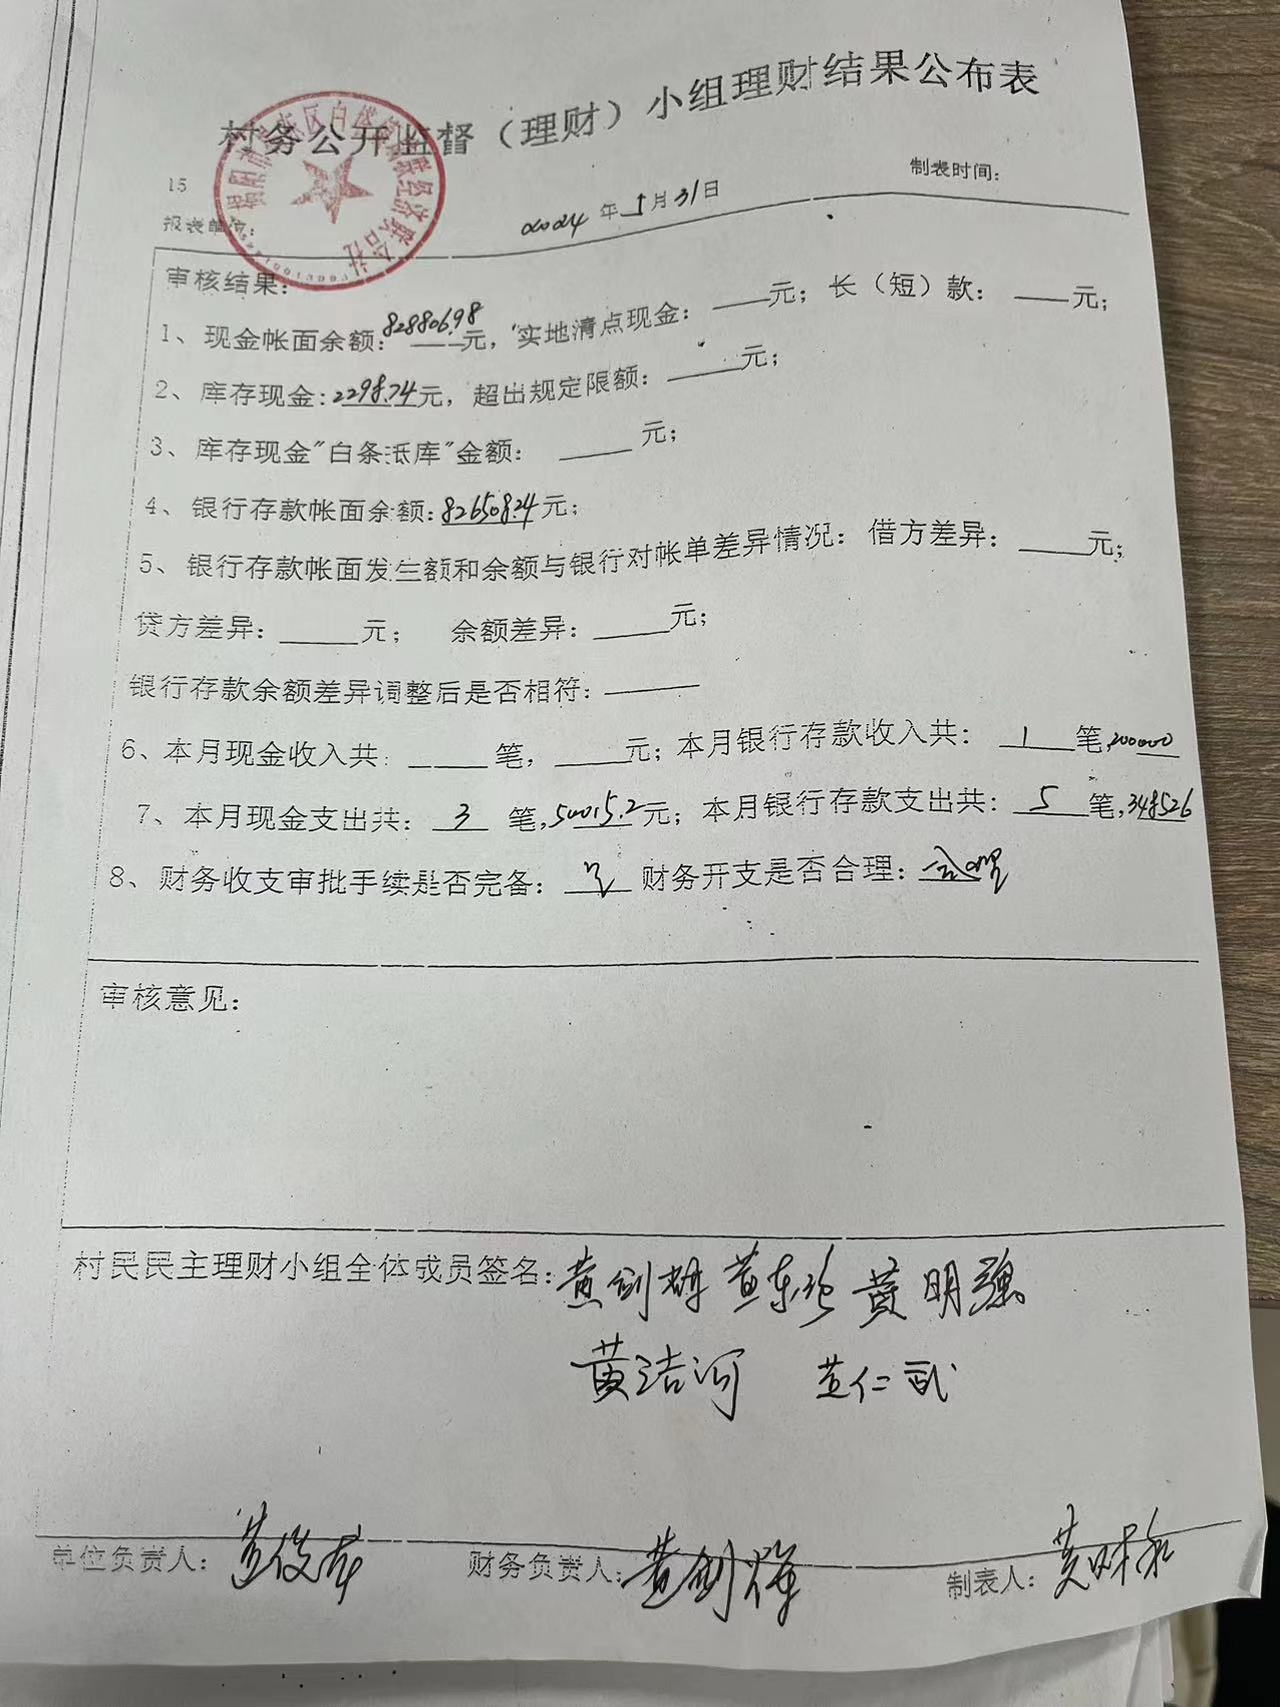 村务公开监督（理财）小组理财结果公布表
15
制表时间：
报表单位：
2024年1月31日
审核结果：
1、现金帐面余额：828806.98元，实地清点现金：元；长（短）款：元；
2、库存现金：2298.74元，超出规定限额：元；
3、库存现金"白条抵库"金额：元；
4、银行存款帐面余额：826508.24元；
5、银行存款帐面发生额和余额与银行对帐单差异情况：借方差异：元；
贷方差异：元；余额差异：元；
银行存款余额差异调整后是否相符：
6、本月现金收入共：笔，元；本月银行存款收入共：1笔，200000
7、本月现金支出共：3笔，50015.2元；本月银行存款支出共：5笔，348526
8、财务收支审批手续是否完备：完 财务开支是否合理：合理
审核意见：
村民民主理财小组全体成员签名：黄剑辉 黄东 黄明强
黄洁河 黄仁武
单位负责人：黄俊
财务负责人：黄剑辉
制表人：黄